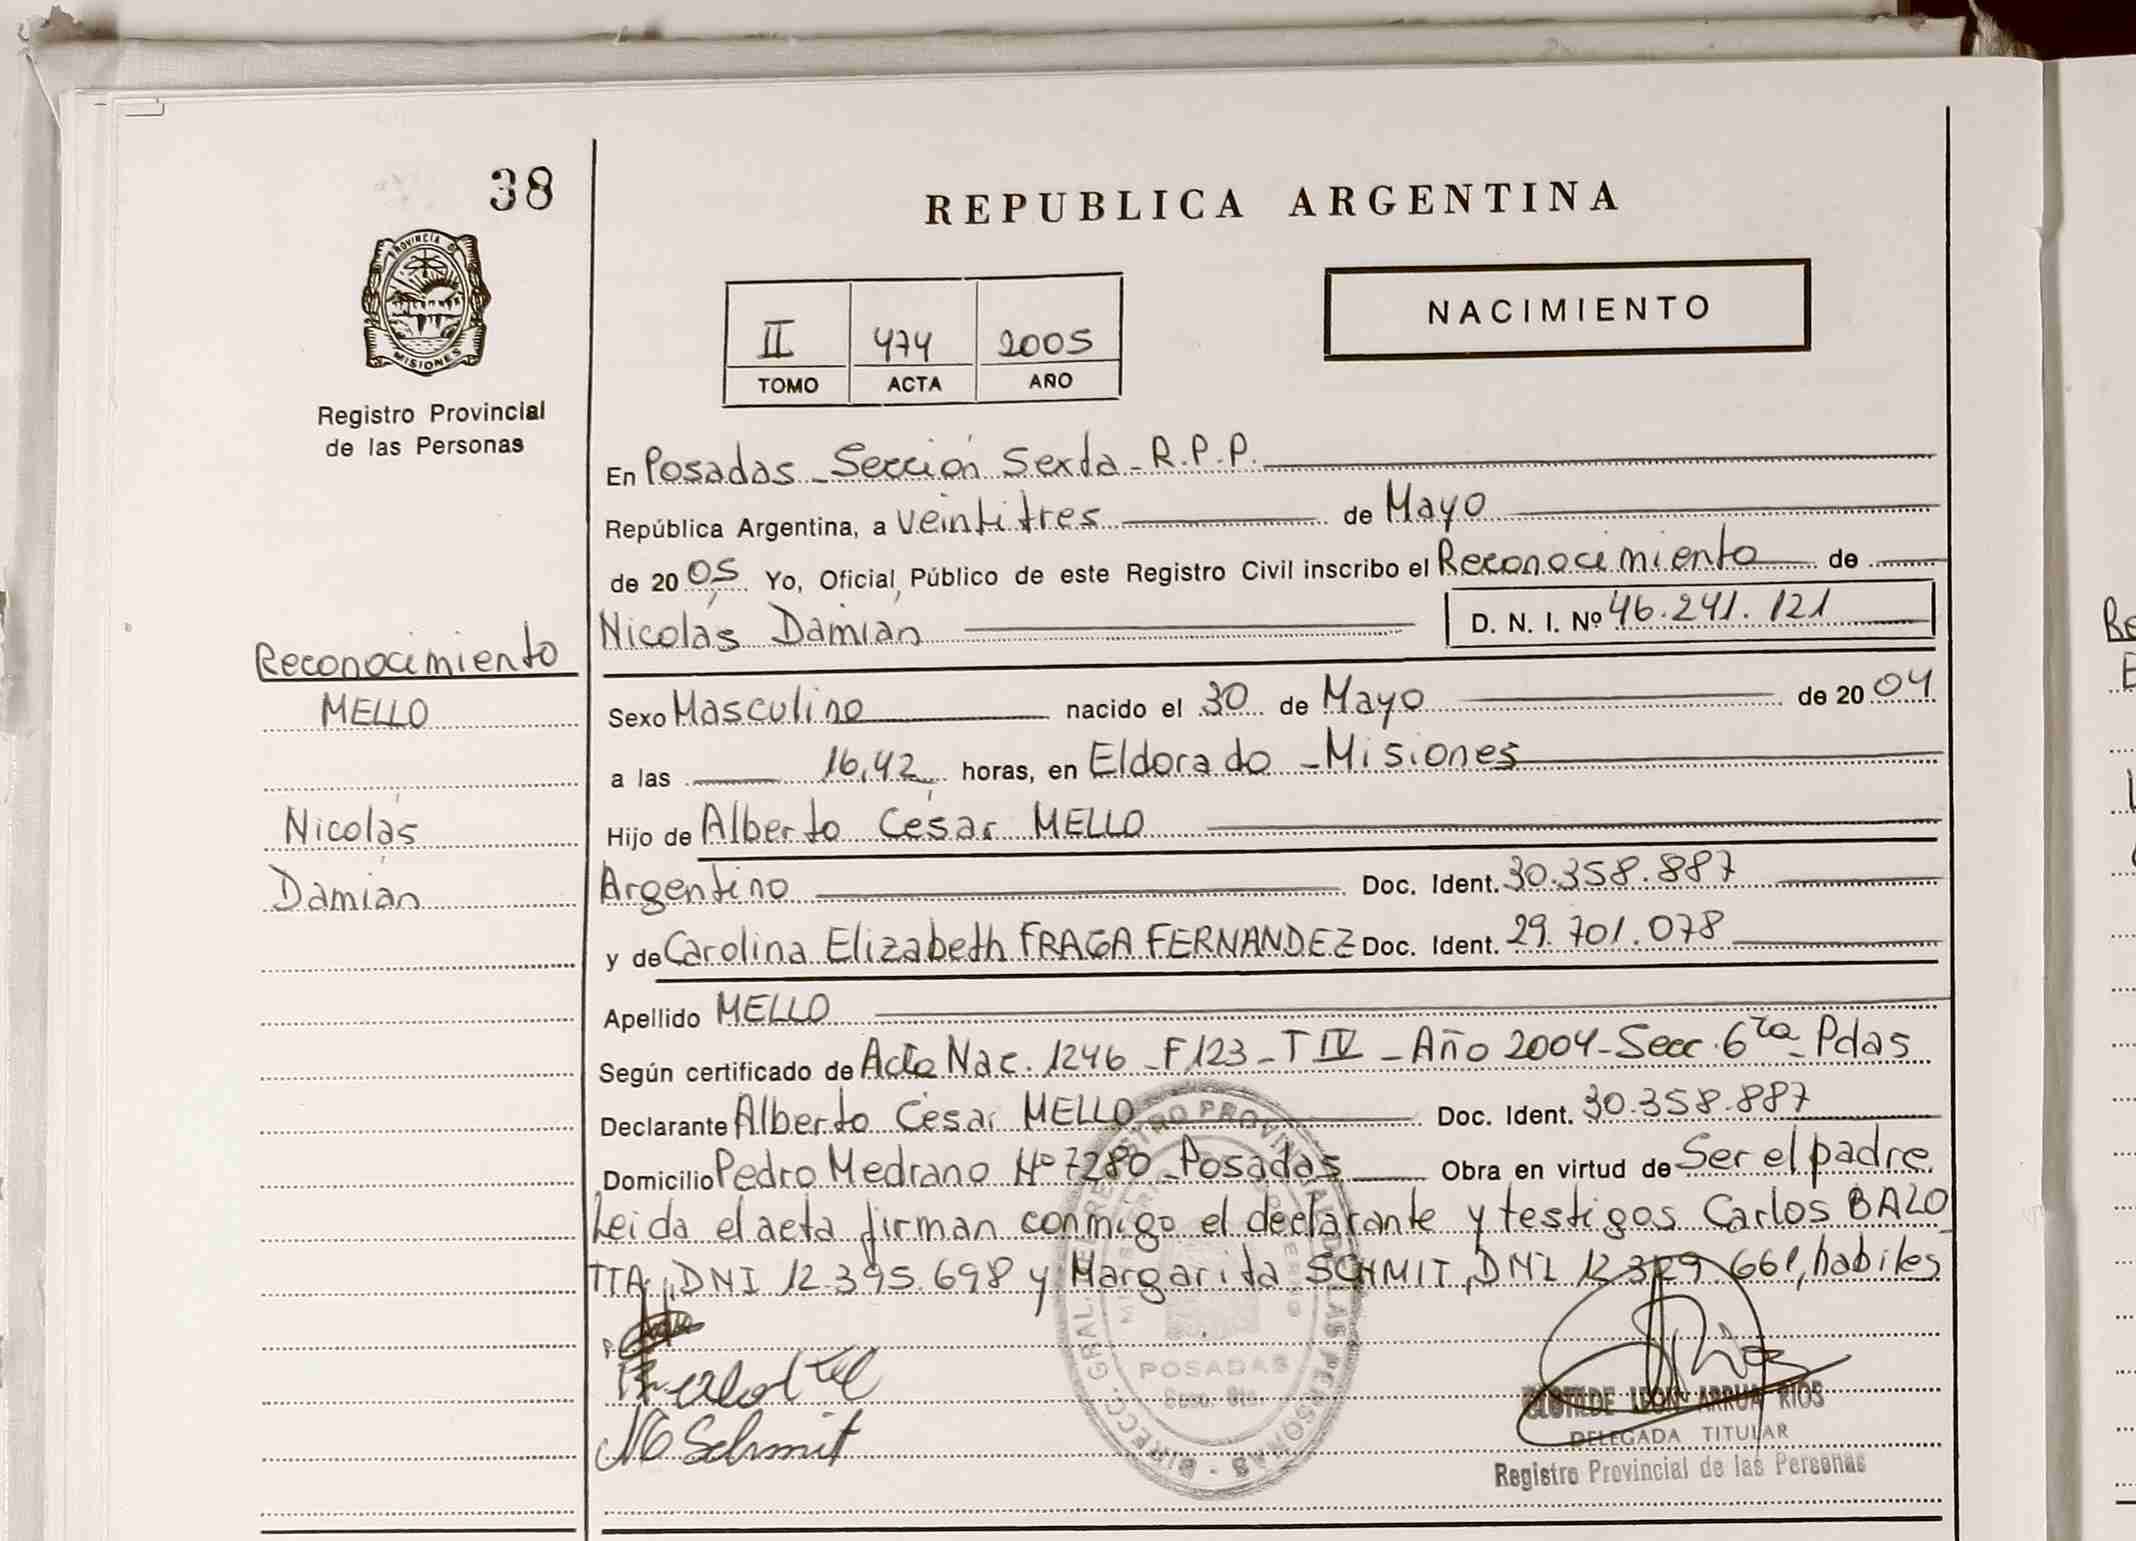 38
REPUBLICA ARGENTINA
PROVINCIA DE
MISIONES
Registro Provincial
de las Personas
II 474 2005
TOMO ACTA AÑO
NACIMIENTO
En Posadas - Sección Sexta - R.P.P.
República Argentina, a veintitres de Mayo
de 2005. Yo, Oficial Público de este Registro Civil inscribo el Reconocimiento de
Nicolás Damián D. N. I. Nº 46.241.121
Reconocimiento
MELLO
Nicolás
Damián
Sexo Masculino nacido el 30 de Mayo de 2004
a las 16,42 horas, en Eldorado - Misiones
Hijo de Alberto César MELLO
Argentino Doc. Ident. 30.358.887
y de Carolina Elizabeth FRAGA FERNANDEZ Doc. Ident. 29.701.078
Apellido MELLO
Según certificado de Acta Nac. 1246 - F 123 - T IV - Año 2004 - Secc. 6ta - Pdas
Declarante Alberto César MELLO Doc. Ident. 30.358.887
Domicilio Pedro Medrano Nº 7280 - Posadas Obra en virtud de Ser el padre.
Leida el acta firman conmigo el declarante y testigos Carlos BALO
TTA, DNI 12.395.698 y Margarita SCHMIT, DNI 12.329.661, habiles
Schmit
DIRECC. GRAL. DEL REGISTRO PROVINCIAL DE LAS PERSONAS
POSADAS
CLOTILDE LEON ARRUA RIOS
DELEGADA TITULAR
Registro Provincial de las Personas